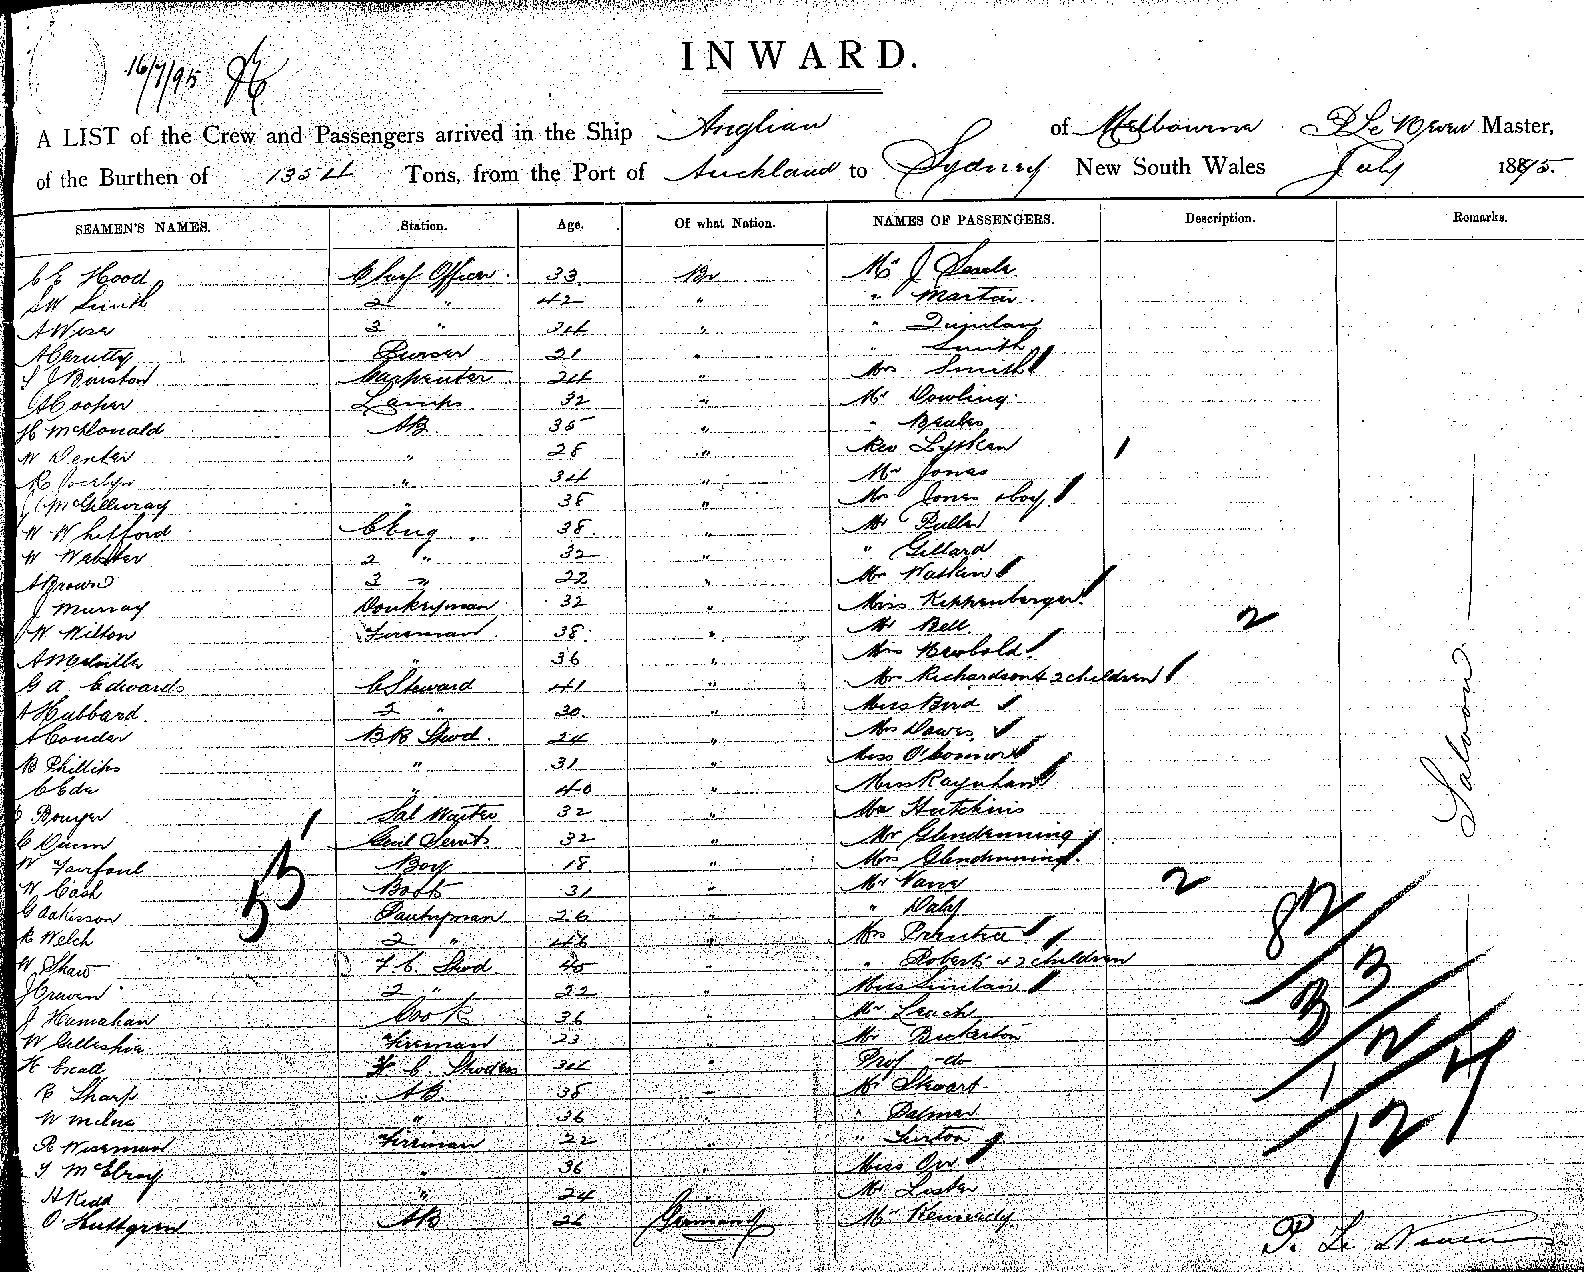 16/7/95
INWARD.
A LIST of the Crew and Passengers arrived in the Ship Anglian of Melbourne Master,
of the Burthen of 1354 Tons, from the Port of Auckland to Sydney New South Wales July 1895.
SEAMEN'S NAMES. Station. Age. Of what Nation. NAMES OF PASSENGERS. Description. Remarks.
C E Hood Chief Officer 33 Br Mr J Searle
S W Smith 2 " 42 " " Martin
A Wise 3 " 24 " " Quinlan
A Cerutty Purser 21 " " Smith
S J Burston Carpenter 24 " Mrs Smith
A Cooper Lamps 32 " Mr Dowling
H McDonald AB 35 " "
W Dexter " 28 " Rev
R Jocelyn " 34 " Mr Jones
J McGilliwray " 38 " Mrs Jones & boy
W Whifford C Eng 38 " Mr Puller
W Webster 2 " 32 " " Gillard
A Brown 3 " 22 " Mrs Watkins
J Murray Donkeyman 32 " Miss Kippenberger 2
W Wilton Fireman 38 " Mr Bell
A Melville " 36 " Mrs Newbold
G A Edwards C Steward 41 " Mrs Richardson & 2 children
A Hubbard 2 " 30 " Miss Bird
A Conder BR Stwd 24 " Mrs Dawes
B Phillips " 31 " Miss O'Connor
C Ede " 40 " Miss Raynham
Bouyer Sal Waiter 32 " Mr Hutchins
C Quinn Genl Servt 32 " Mr Glendenning
W Fairfoul Boy 18 " Mrs Glendenning
W Cash Boots 31 " Mr 2
G Adkerson Pantryman 26 " " Daly
R Welch 2 " 46 " Mrs Prentice
W Shaw F C Stwd 40 " " Roberts & 2 children
J Craven 2 " 22 " Miss Sinclair
J Hannahan Cook 36 " Mr Leach
W Gillespie Fireman 23 " Mr Bickerton
H Eead F C Stwdess 34 " Prof -do-
C Sharp AB 38 Mr Stewart
W Milne " 36 " Palmer
R Wiseman Fireman 22 " " Turton
T McElroy " 36 Miss Orr
A Kidd " 24 Mr Lister
O Huttgren AB 26 Germany Mr Kennedy
Saloon
P. Le Neven